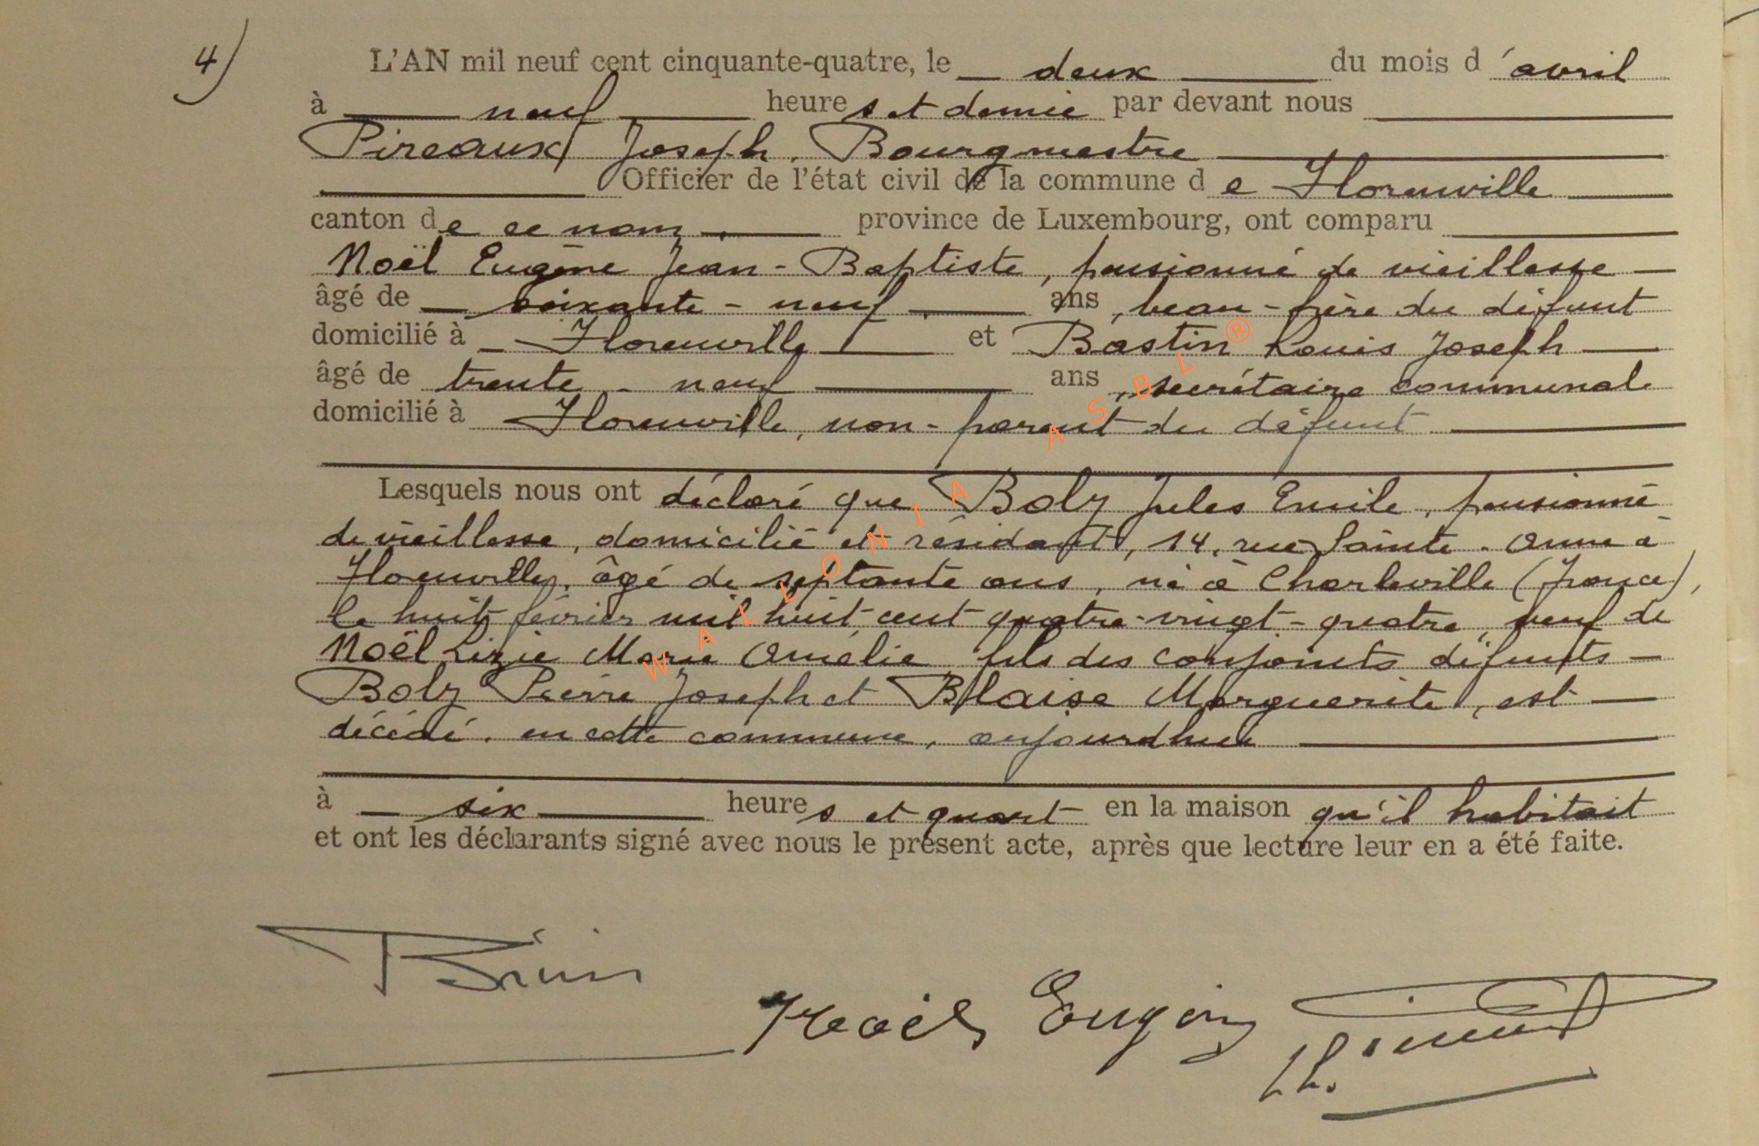 4)
L'AN mil neuf cent cinquante-quatre, le deux du mois d'avril
à neuf heures et demie par devant nous
Pireaux Joseph, Bourgmestre
Officier de l'état civil de la commune de Florenville
canton de ce nom, province de Luxembourg, ont comparu
Noël Eugène Jean-Baptiste, pensionné de vieillesse
âgé de soixante-neuf ans, beau-frère du défunt
domicilié à Florenville et Bastin Louis Joseph
âgé de trente-neuf ans, secrétaire communal
domicilié à Florenville, non-parent du défunt
Lesquels nous ont déclaré que Boly Jules Emile, pensionné
de vieillesse, domicilié et résidant, 14, rue Sainte-Anne à
Florenville, âgé de septante ans, né à Charleville (France),
le huit février mil huit cent quatre-vingt-quatre, veuf de
Noël Lizie Marie Amélie, fils des conjoints défunts
Boly Pierre Joseph et Blaise Marguerite, est
décédé, en cette commune, aujourdhui
à six heures et quart en la maison qu'il habitait
et ont les déclarants signé avec nous le présent acte, après que lecture leur en a été faite.
Noël Eugène
WALLONIA ASBL ®